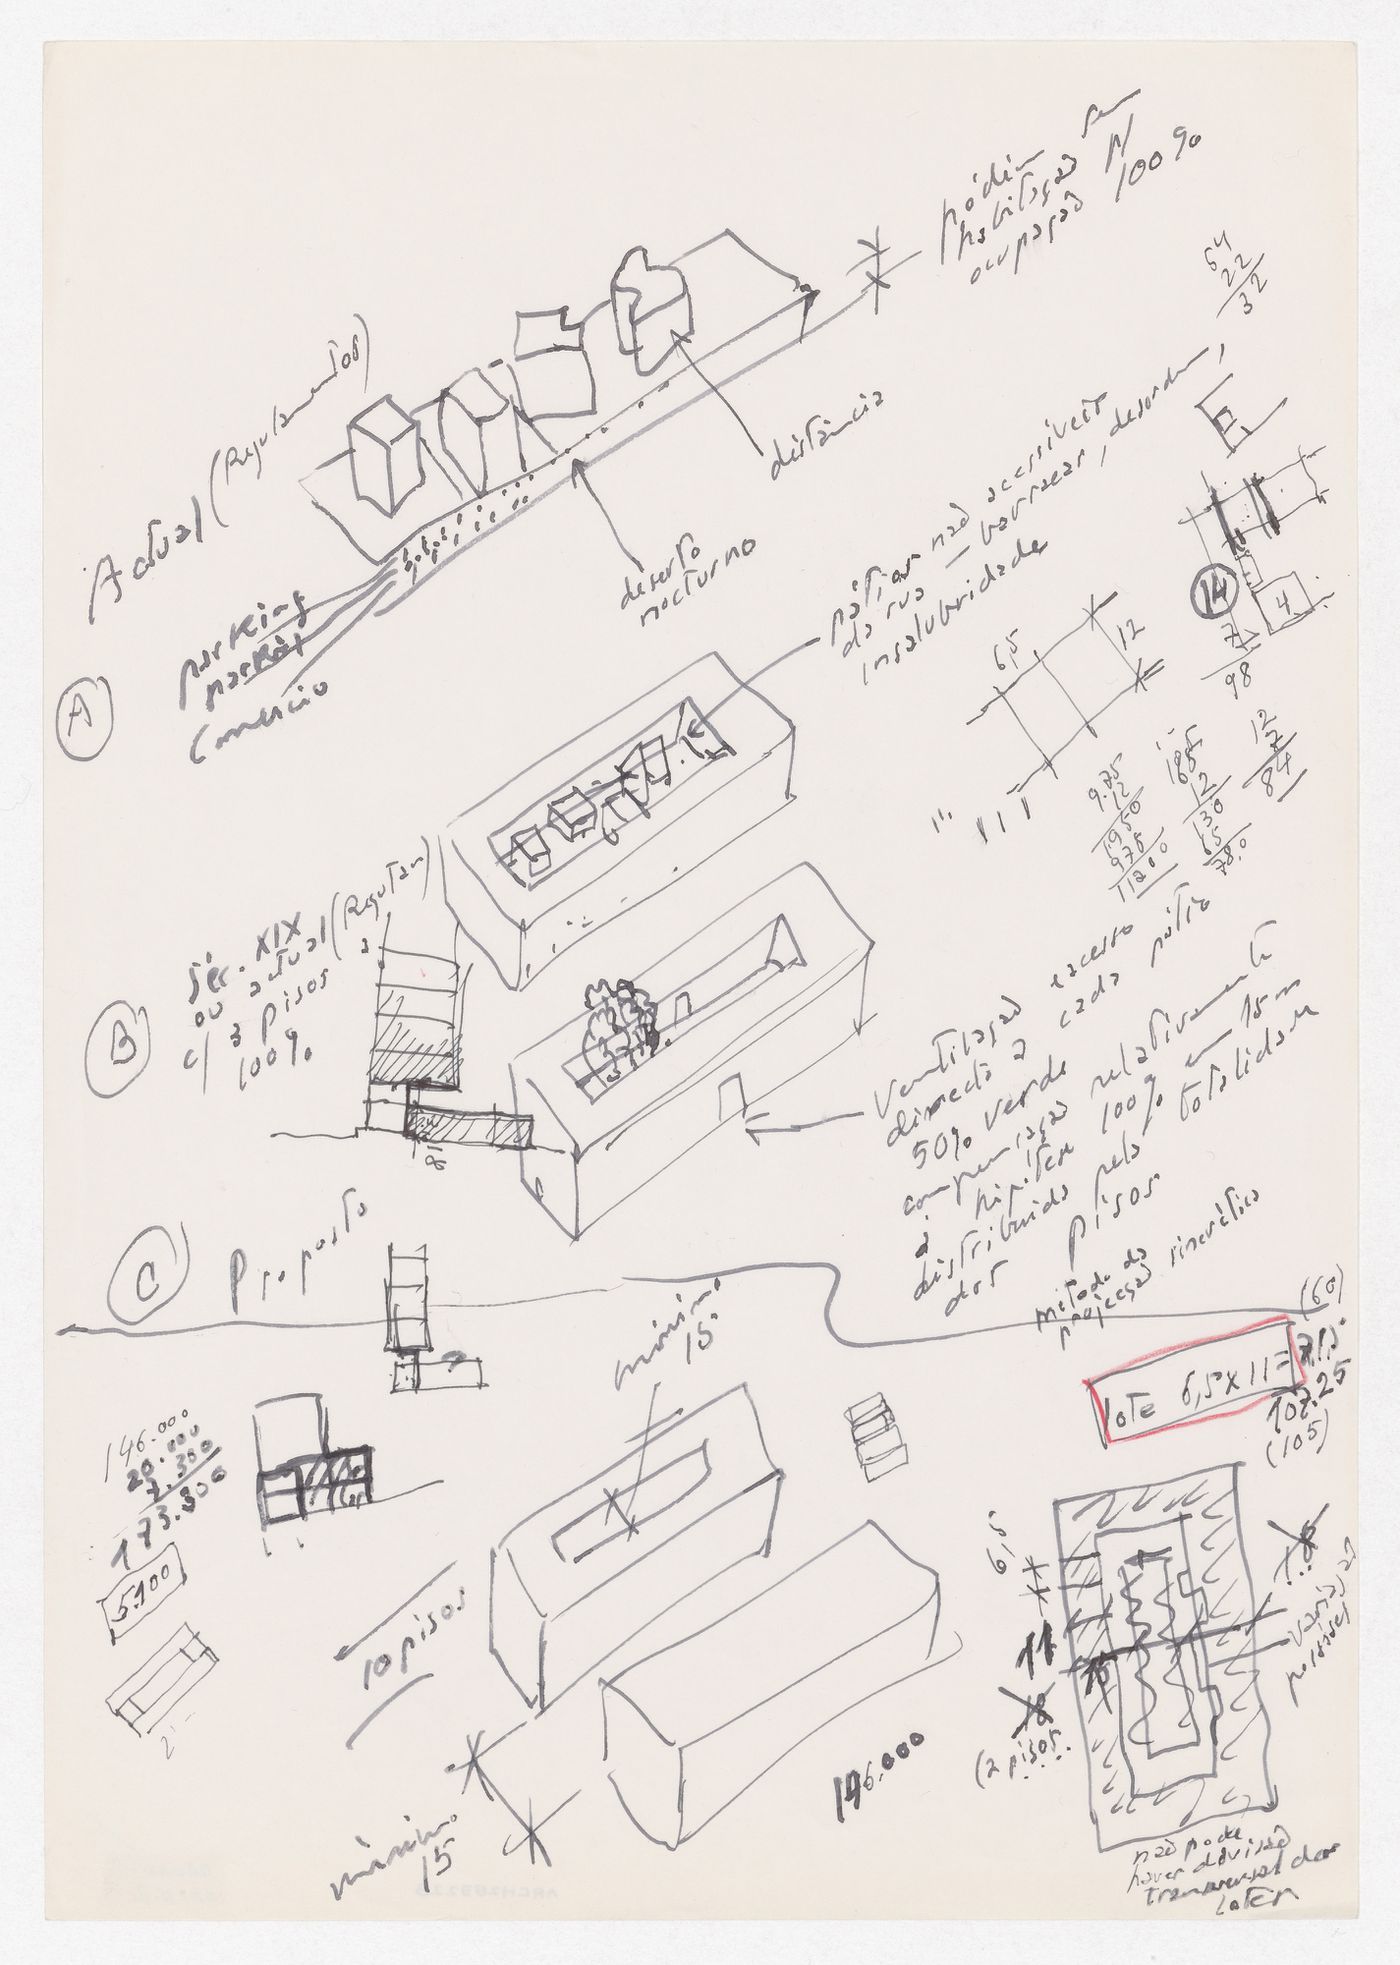 pódium sem
habitação p/
ocupação 100%
54
22
32
Actual (Regulamentos)
distância
deserto
nocturno
parking
parking
Comércio
A
pátios não acessíveis
da rua — barracas, desordem,
insalubridade
6,5
12
14
7
98
4
12
7
84
9.75
12
1950
975
12
130
65
78.0
Séc. XIX
ou actual (Regulam)
c/ 3 pisos
100%
B
Ventilação acesso
directo a cada pátio
50% verde
compensação relativamente
à hipótese 100% em 15m
distribuído pela totalidade
dos pisos
C
Proposto
método de
projecção sincrético
mínimo
15
(60)
lote 6,5 x 11 = 71,5
107.25
(105)
146.000
20.000
7.300
173.300
5.100
10 pisos
mínimo
15
146.000
6,5
11
15
18
(2 pisos)
18
variação
possível
não pode
haver divisão
transversal dos
lotes
ARCH269225